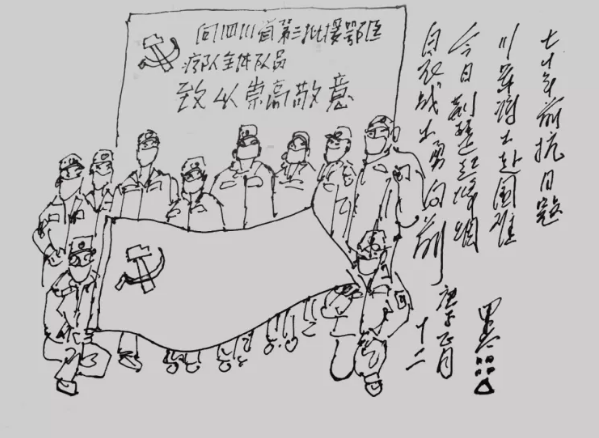 向四川省第三批援鄂医
疗队全体队员
致以崇高敬意
七十年前抗日题
川军将士赴国难
今日荆楚起烽烟
白衣战士勇向前
庚子正月
十二